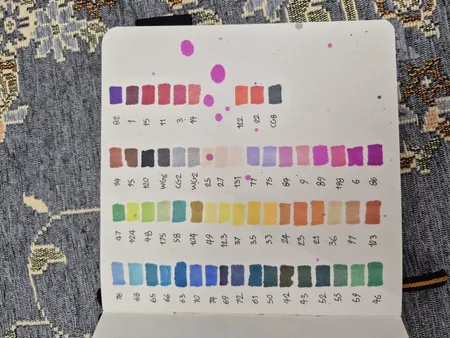 82 1 15 11 3 14 122 22 CG8
94 95 120 WG6 CG2 WG2 25 27 131 77 75 84 9 89 198 6 86
47 124 48 175 58 104 49 123 37 35 33 24 23 21 36 97 103
76 68 65 66 63 70 74 69 72 61 50 42 43 52 55 59 46